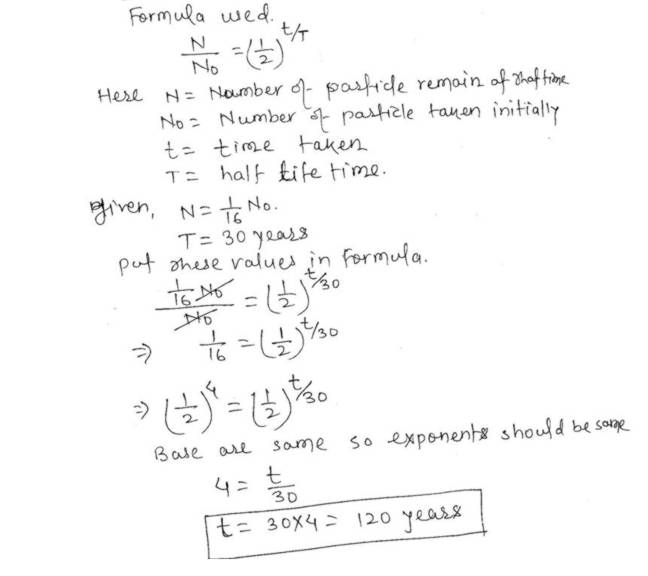 Formula used.
N/No = (1/2)^t/T
Here N = Number of particle remain after time
No = Number of particle taken initially
t = time taken
T = half life time.
given, N = 1/16 No.
T = 30 years
put these values in Formula.
1/16 No / No = (1/2)^t/30
⇒ 1/16 = (1/2)^t/30
⇒ (1/2)^4 = (1/2)^t/30
Base are same so exponents should be same
4 = t/30
t = 30×4 = 120 years